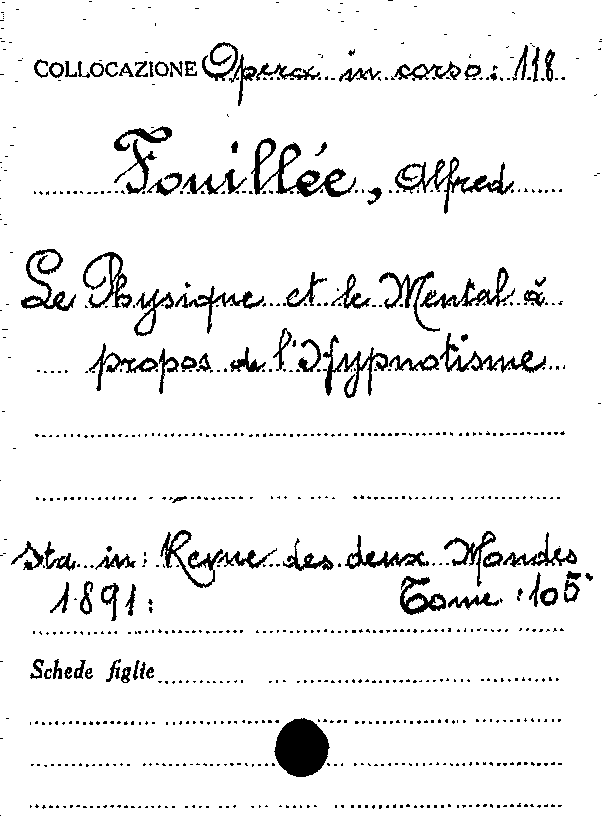 COLLOCAZIONE Opera in corso: 118
Fouillée, Alfred
Le Physique et le Mental à
propos de l'Hypnotisme
Sta in: Revue des deux Mondes
1891: Tome: 105
Schede figlie